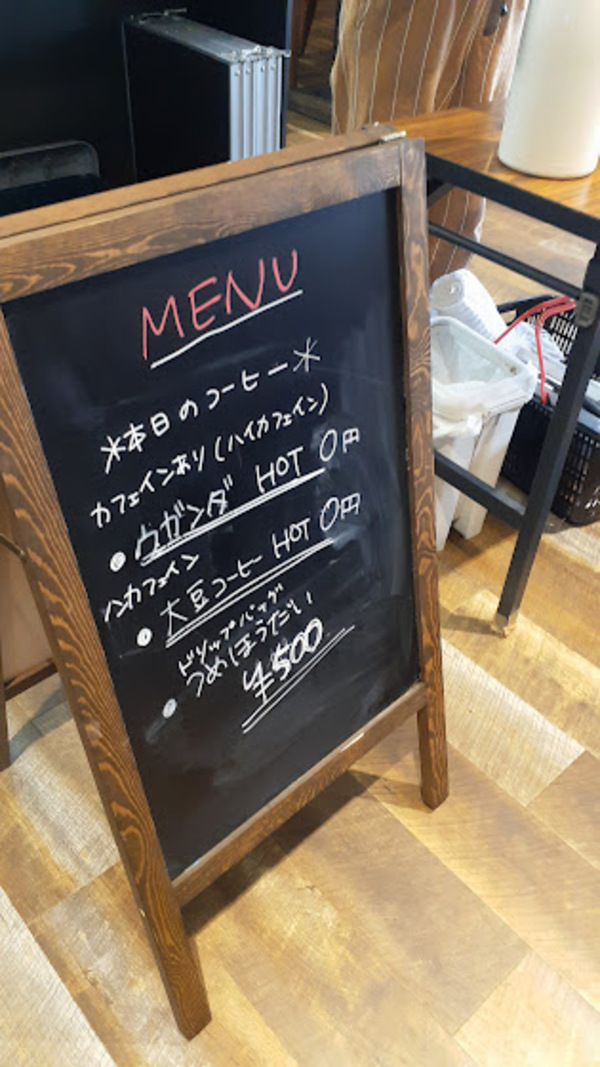 MENU
*本日のコーヒー*
カフェインあり(ハイカフェイン)
・ウガンダ HOT 0円
ノンカフェイン
・大豆コーヒー HOT 0円
ドリップバッグ
・つめほうだい
¥500